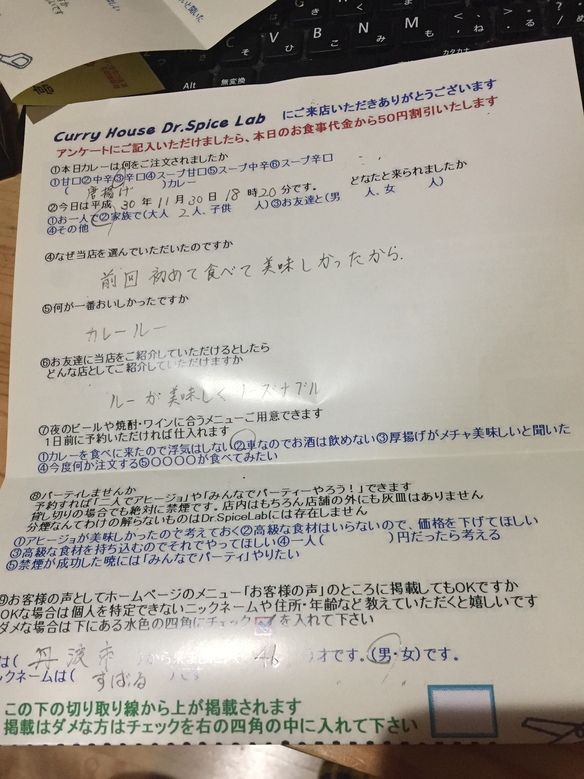 Alt
無変換
カタカナ
Curry House Dr.Spice Lab にご来店いただきありがとうございます
アンケートにご記入いただけましたら、本日のお食事代金から50円割引いたします
①本日カレーは何をご注文されましたか
①甘口②中辛③辛口④スープ甘口⑤スープ中辛⑥スープ辛口
( 唐揚げ )カレー
②今日は平成 30年 11月 30日 18時 20分です。 どなたと来られましたか
①お一人で②家族で(大人 2人、子供 人)③お友達と(男 人、女 人)
④その他
④なぜ当店を選んでいただいたのですか
前回 初めて食べて美味しかったから.
⑤何が一番おいしかったですか
カレールー
⑥お友達に当店をご紹介していただけるとしたら
どんな店としてご紹介していただけますか
ルーが美味しく リーズナブル
⑦夜のビールや焼酎・ワインに合うメニューご用意できます
1日前に予約いただければ仕入れます
①カレーを食べに来たので浮気はしない②車なのでお酒は飲めない③厚揚げがメチャ美味しいと聞いた
④今度何か注文する⑤〇〇〇〇が食べてみたい
⑧パーティしませんか
予約すれば「二人でアヒージョ」や「みんなでパーティーやろう!」できます
貸し切りの場合でも絶対に禁煙です。店内はもちろん店舗の外にも灰皿はありません
分煙なんてわけの解らないものはDr.SpiceLabには存在しません
①アヒージョが美味しかったので考えておく②高級な食材はいらないので、価格を下げてほしい
③高級な食材を持ち込むのでそれでやってほしい④一人( )円だったら考える
⑤禁煙が成功した暁には「みんなでパーティ」やりたい
⑨お客様の声としてホームページのメニュー「お客様の声」のところに掲載してもOKですか
OKな場合は個人を特定できないニックネームや住所・年齢など教えていただくと嬉しいです
ダメな場合は下にある水色の四角にチェック を入れて下さい
は( 丹波市 )から来ました 46 才です。(男・女)です。
ックネームは( すばる )です
この下の切り取り線から上が掲載されます
掲載はダメな方はチェックを右の四角の中に入れて下さい